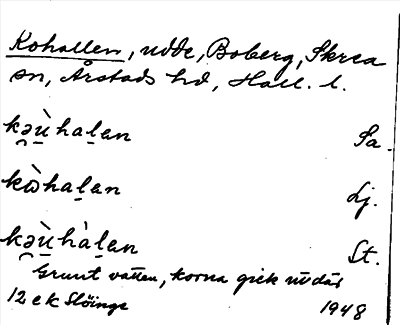 Kohallen, udde, Boberg, Skrea
sn, Årstads hd, Hall. l.
kə̯ùhaḷen Sa.
kòhaḷen Lj.
kə̯ùhàḷen St.
Grunt vatten, korna gick ut där
12 ek Slöinge 1948